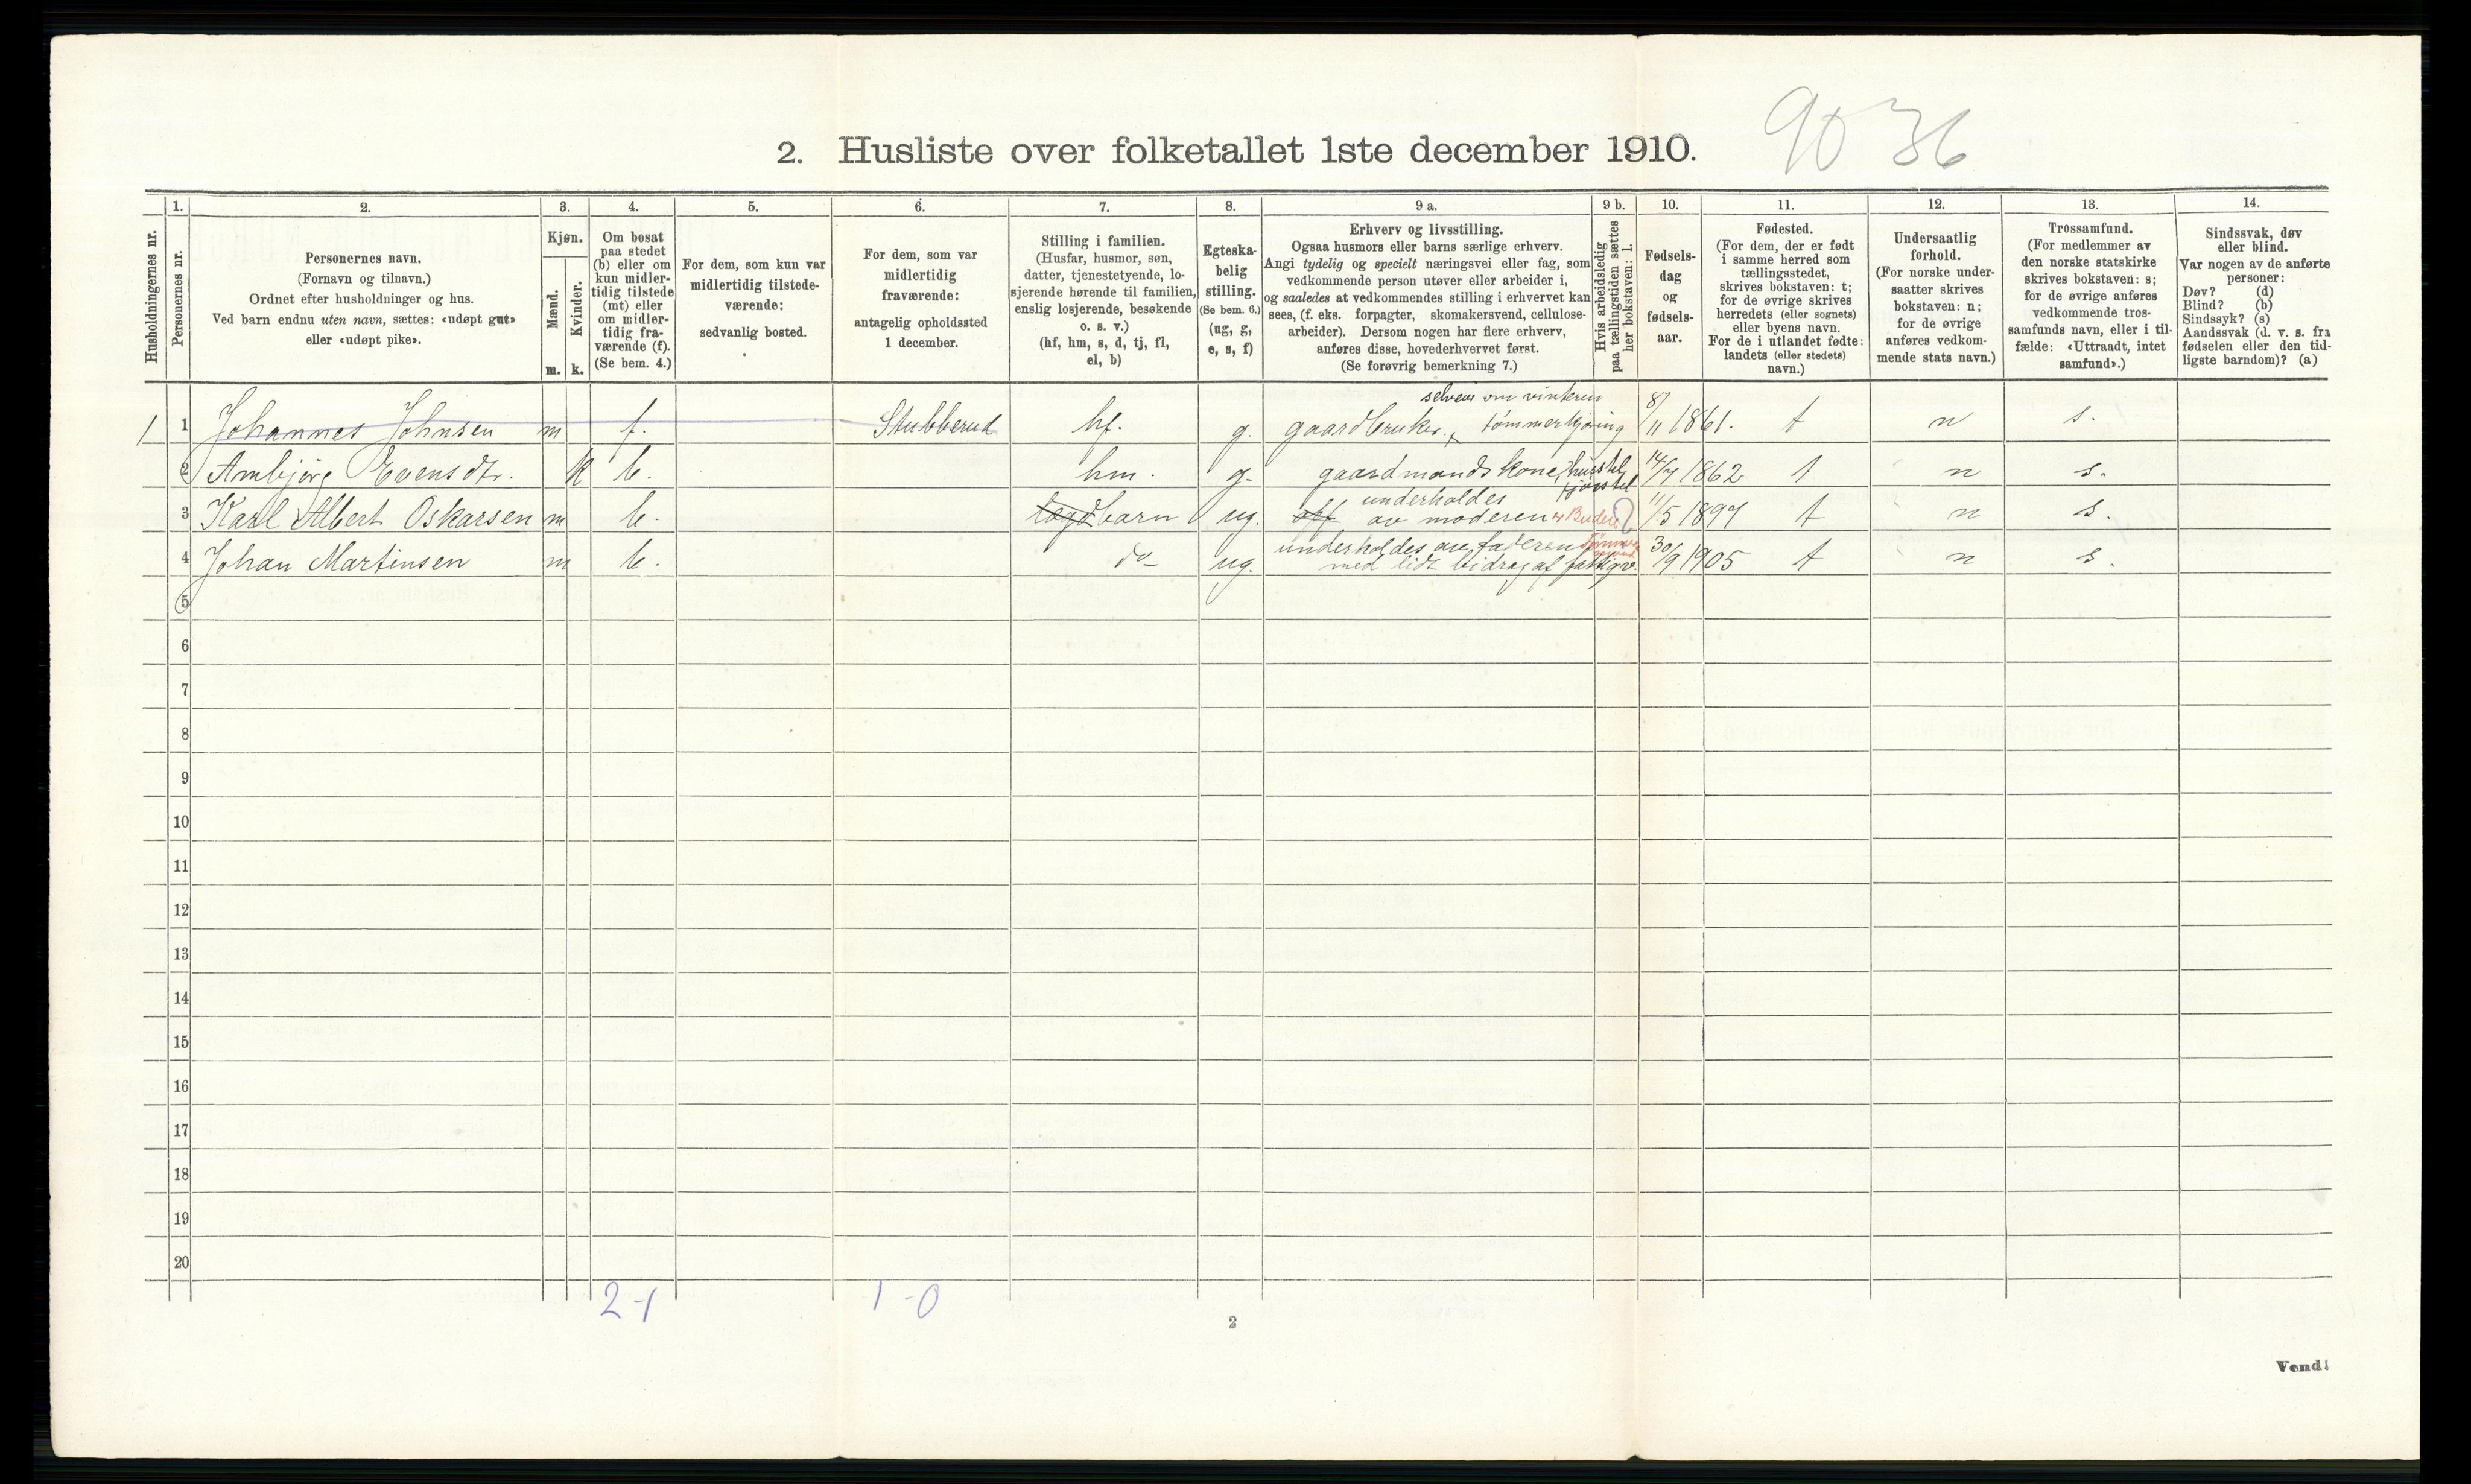 90 36
2. Husliste over folketallet 1ste december 1910.
Husholdningernes nr.
1.
Personernes nr.
2.
Personernes navn.
(Fornavn og tilnavn.)
Ordnet efter husholdninger og hus.
Ved barn endnu uten navn, sættes: «udøpt gut»
eller «udøpt pike».
3.
Kjøn.
Mænd.
Kvinder.
m. k.
4.
Om bosat
paa stedet
(b) eller om
kun midler-
tidig tilstede
(mt) eller
om midler-
tidig fra-
værende (f).
(Se bem. 4.)
5.
For dem, som kun var
midlertidig tilstede-
værende:
sedvanlig bosted.
6.
For dem, som var
midlertidig
fraværende:
antagelig opholdssted
1 december.
7.
Stilling i familien.
(Husfar, husmor, søn,
datter, tjenestetyende, lo-
sjerende hørende til familien,
enslig losjerende, besøkende
o. s. v.)
(hf, hm, s, d, tj, fl,
el, b)
8.
Egteska-
belig
stilling.
(Se bem. 6.)
(ug, g,
e, s, f)
9 a.
Erhverv og livsstilling.
Ogsaa husmors eller barns særlige erhverv.
Angi tydelig og specielt næringsvei eller fag, som
vedkommende person utøver eller arbeider i,
og saaledes at vedkommendes stilling i erhvervet kan
sees, (f. eks. forpagter, skomakersvend, cellulose-
arbeider). Dersom nogen har flere erhverv,
anføres disse, hovederhvervet først.
(Se forøvrig bemerkning 7.)
9 b.
Hvis arbeidsledig
paa tællingstiden sættes
her bokstaven: l.
10.
Fødsels-
dag
og
fødsels-
aar.
11.
Fødested.
(For dem, der er født
i samme herred som
tællingsstedet,
skrives bokstaven: t;
for de øvrige skrives
herredets (eller sognets)
eller byens navn.
For de i utlandet fødte:
landets (eller stedets)
navn.)
12.
Undersaatlig
forhold.
(For norske under-
saatter skrives
bokstaven: n;
for de øvrige
anføres vedkom-
mende stats navn.)
13.
Trossamfund.
(For medlemmer av
den norske statskirke
skrives bokstaven: s;
for de øvrige anføres
vedkommende tros-
samfunds navn, eller i til-
fælde: «Uttraadt, intet
samfund».)
14.
Sindssvak, døv
eller blind.
Var nogen av de anførte
personer:
Døv? (d)
Blind? (b)
Sindssyk? (s)
Aandssvak (d. v. s. fra
fødselen eller den tid-
ligste barndom)? (a)
selveier om vinteren
1 1 Johannes Johnsen m f. Stubberud hf. g. gaardbruker, tømmerkjøring 8/11 1861. t n s.
2 Arnbjørg Evensdtr. k b. hm. g. gaardmandskone, husstel fjøsstel 14/7 1862 t n s.
underholdes
3 Karl Albert Oskarsen m b. lægdbarn ug. av moderen 11/5 1897 t n s.
underholdes av faderen
4 Johan Martinsen m b. do ug. med lidt bidrag af fattigv. 30/9 1905 t n s.
5
6
7
8
9
10
11
12
13
14
15
16
17
18
19
20
2-1 1-0
2
Vend!